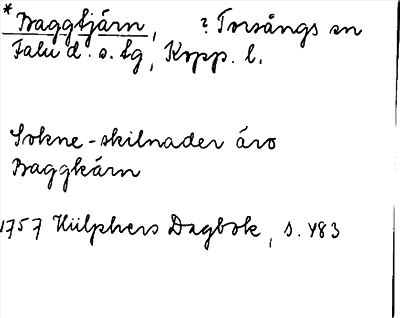 * Baggtjärn, ? Torsångs sn
Falu d. s. tg, Kopp. l.
Sokne-skilnader äro
Baggkärn
1757 Hülphers Dagbok, s. 483